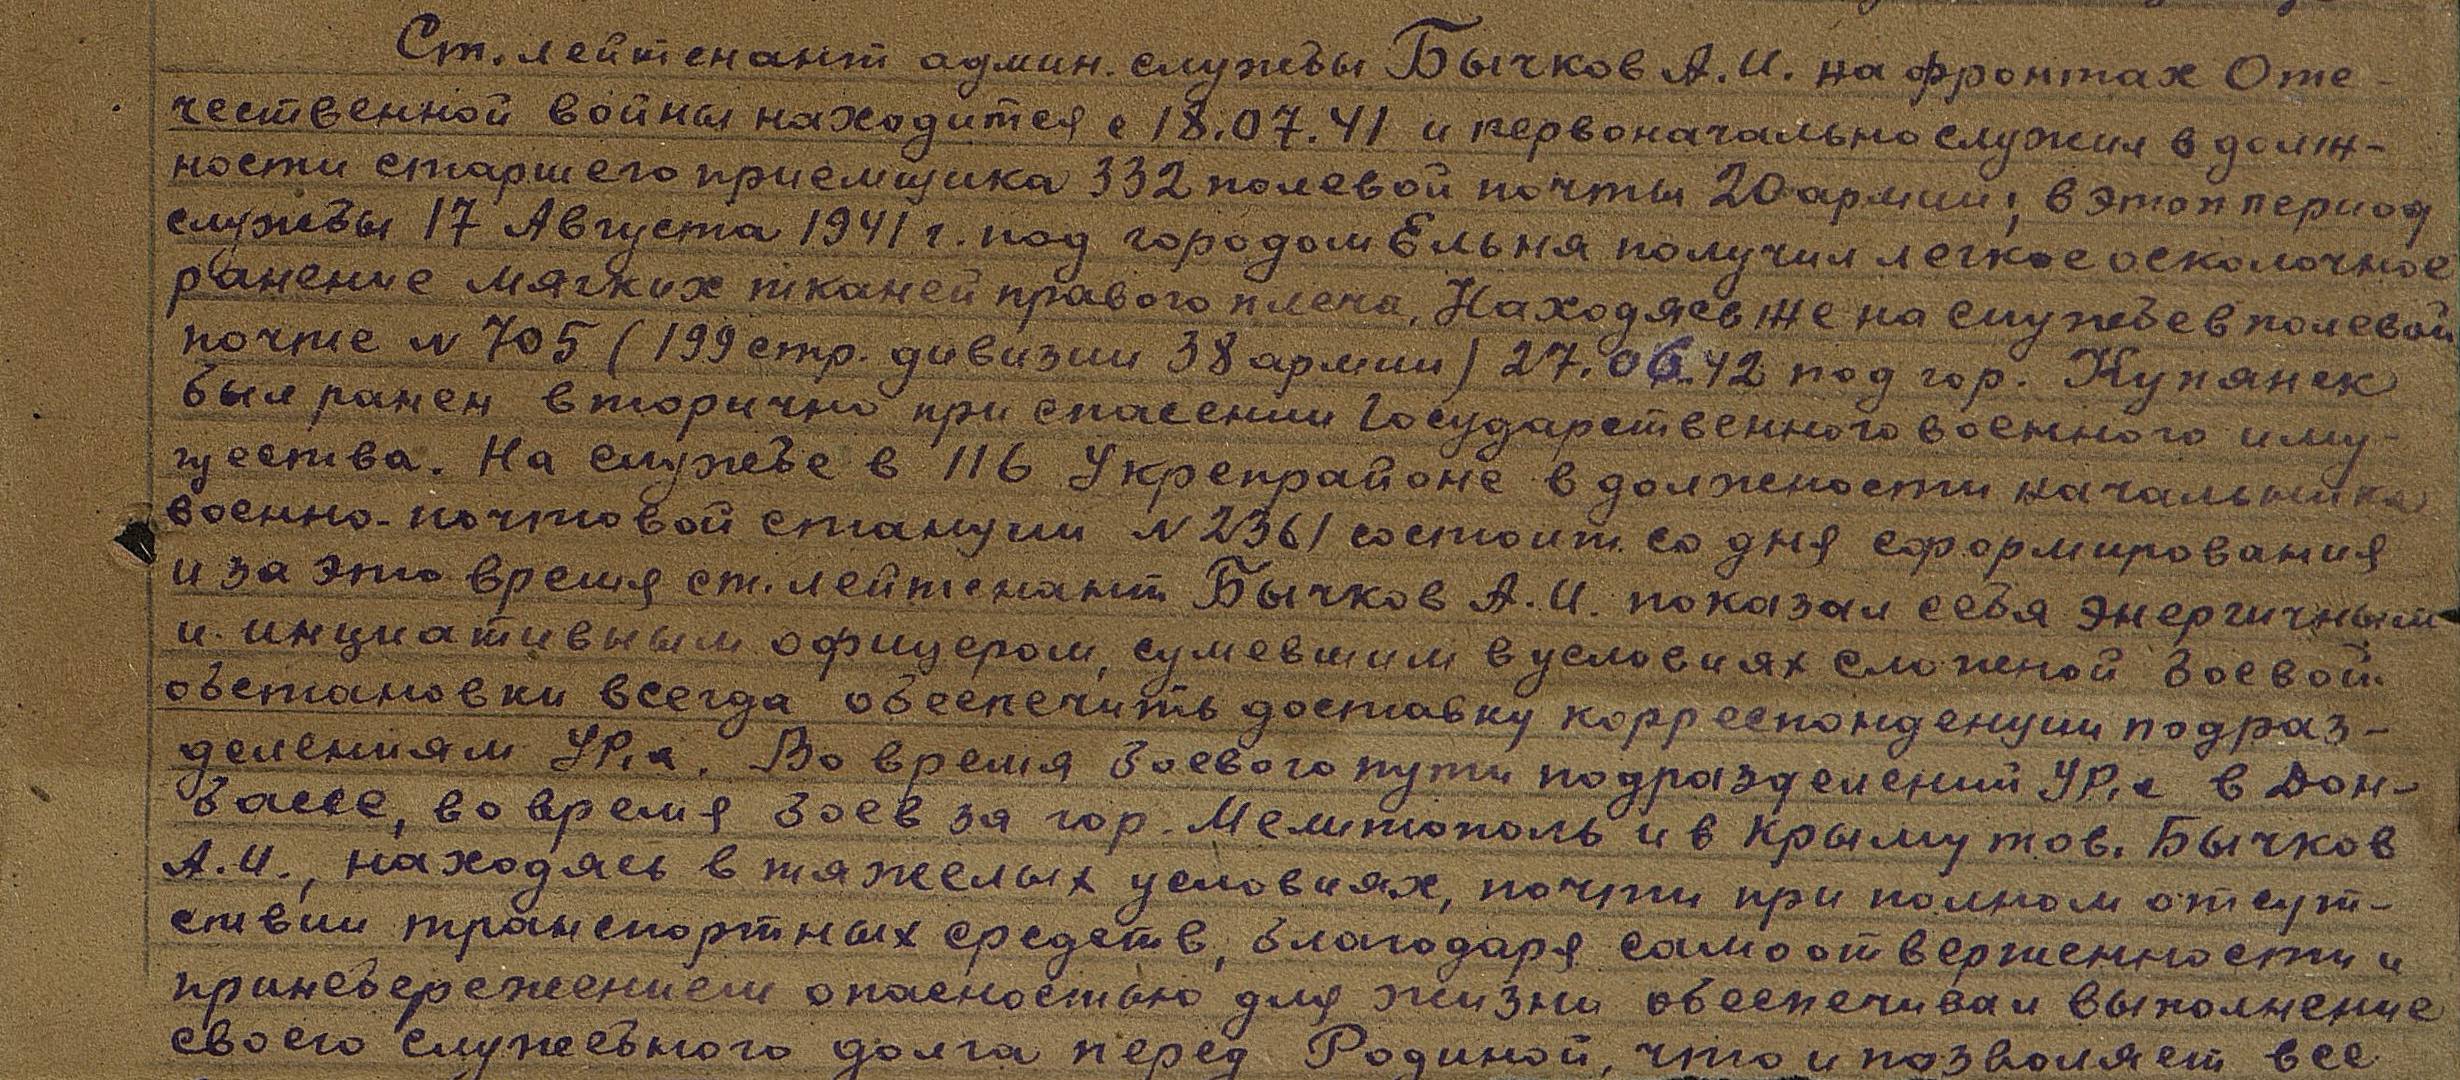 Ст. лейтенант админ. службы Бычков А.И. на фронтах Оте-
чественной войны находится с 18.07.41 и первоначально служил в долж-
ности старшего приемщика 332 полевой почты 20 армии, в этот период
службы 17 Августа 1941 г. под городом Ельня получил легкое осколочное
ранение мягких тканей правого плеча. Находясь же на службе в полевой
почте N 705 (199 стр. дивизии 38 армии) 27.06.42 под гор. Купянск
был ранен вторично при спасении Государственного военного иму-
щества. На службе в 116 Укрепрайоне в должности начальника
военно-почтовой станции N 2361 состоит со дня сформирования
и за это время ст. лейтенант Бычков А.И. показал себя энергичным
и инциативным офицером, сумевшим в условиях сложной боевой
обстановки всегда обеспечить доставку корреспонденции подраз-
делениям УР,а. Во время боевого пути подразделений УР,а в Дон-
бассе, во время боев за гор. Мелитополь и в Крыму тов. Бычков
А.И., находясь в тяжелых условиях, почти при полном отсут-
ствии транспортных средств, благодаря самоотверженности и
принебережением опасностью для жизни обеспечивал выполнение
своего служебного долга перед Родиной, что и позволяет все